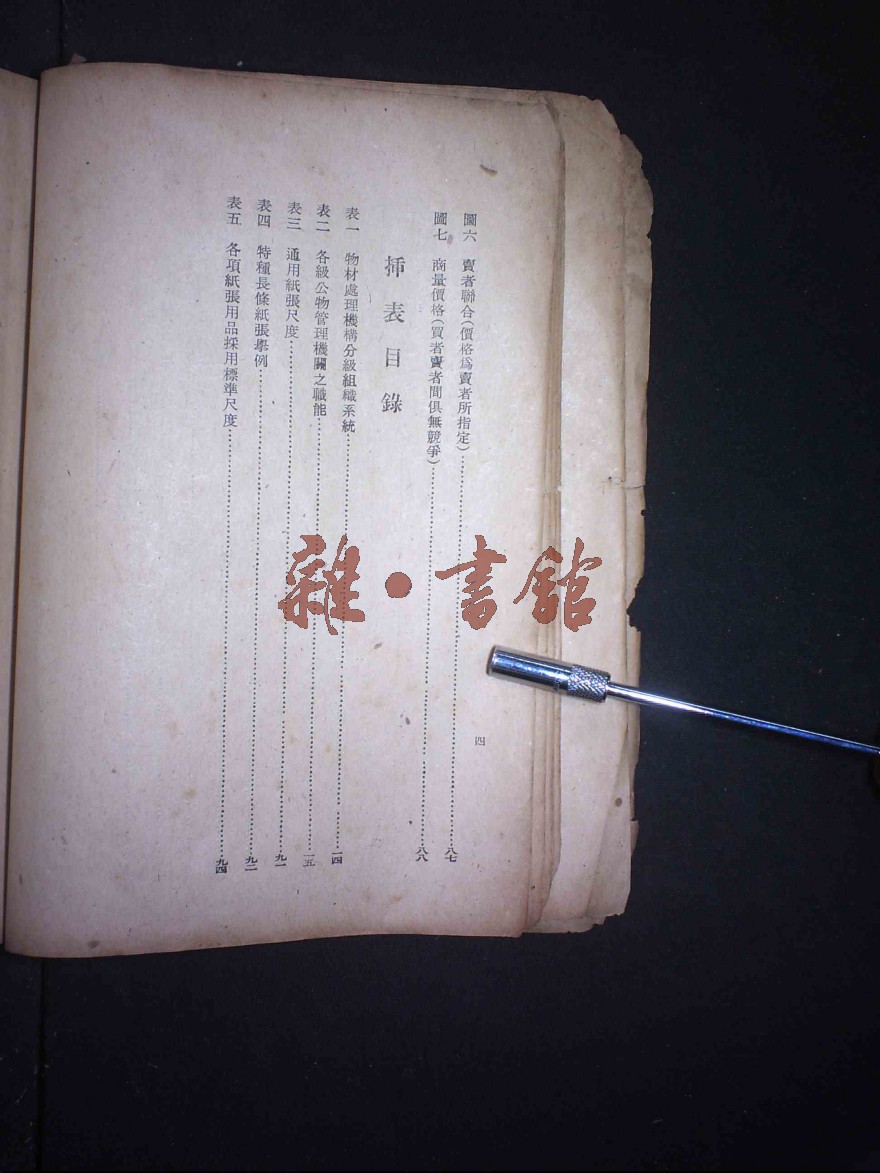 圖六　賣者聯合(價格爲賣者所指定)…………八七
圖七　商量價格(買者賣者間俱無競爭)…………八八
插表目錄
表一　物材處理機構分級組織系統…………一四
表二　各級公物管理機關之職能…………一五
表三　通用紙張尺度…………九一
表四　特種長條紙張舉例…………九二
表五　各項紙張用品採用標準尺度…………九四
四
雜·書館